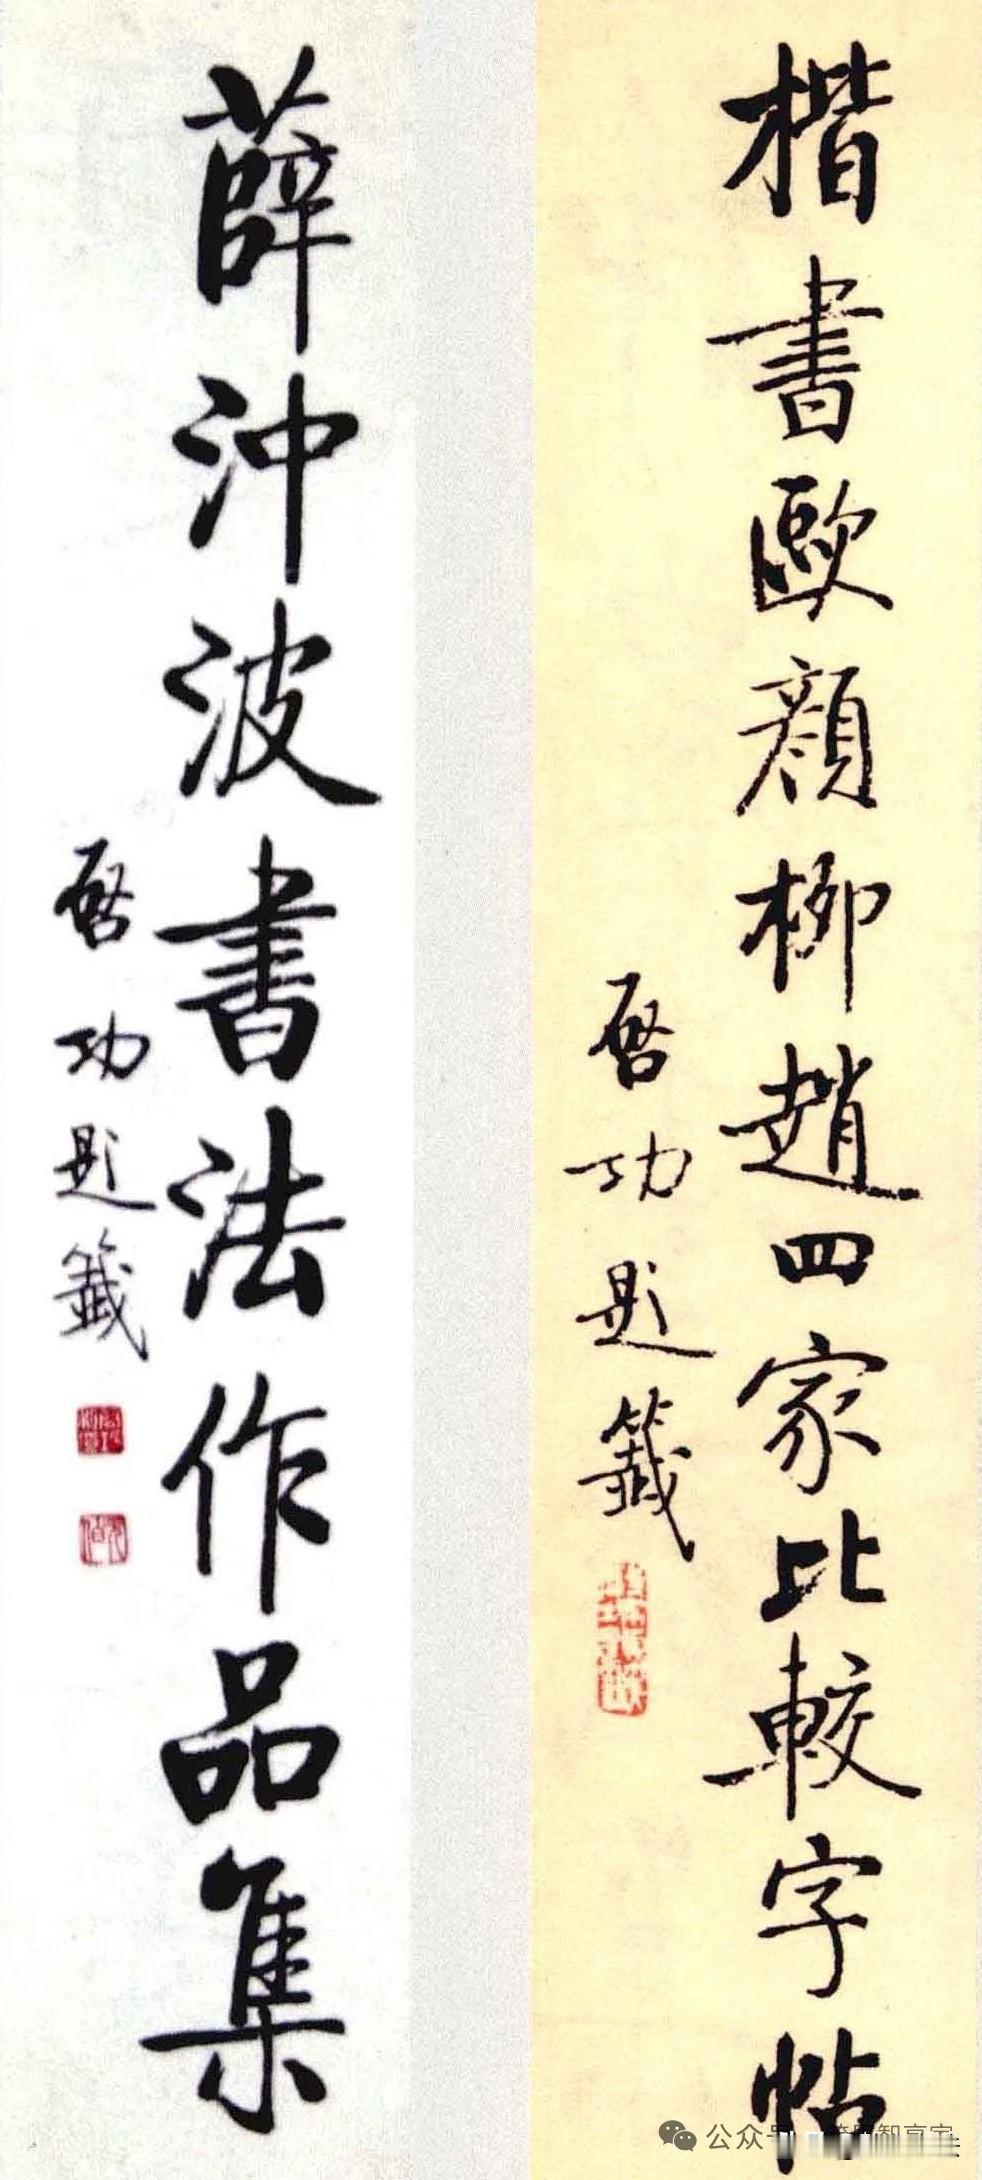 楷書歐顏柳趙四家比較字帖
啓功題籤
薛沖波書法作品集
啓功題籤
公众号